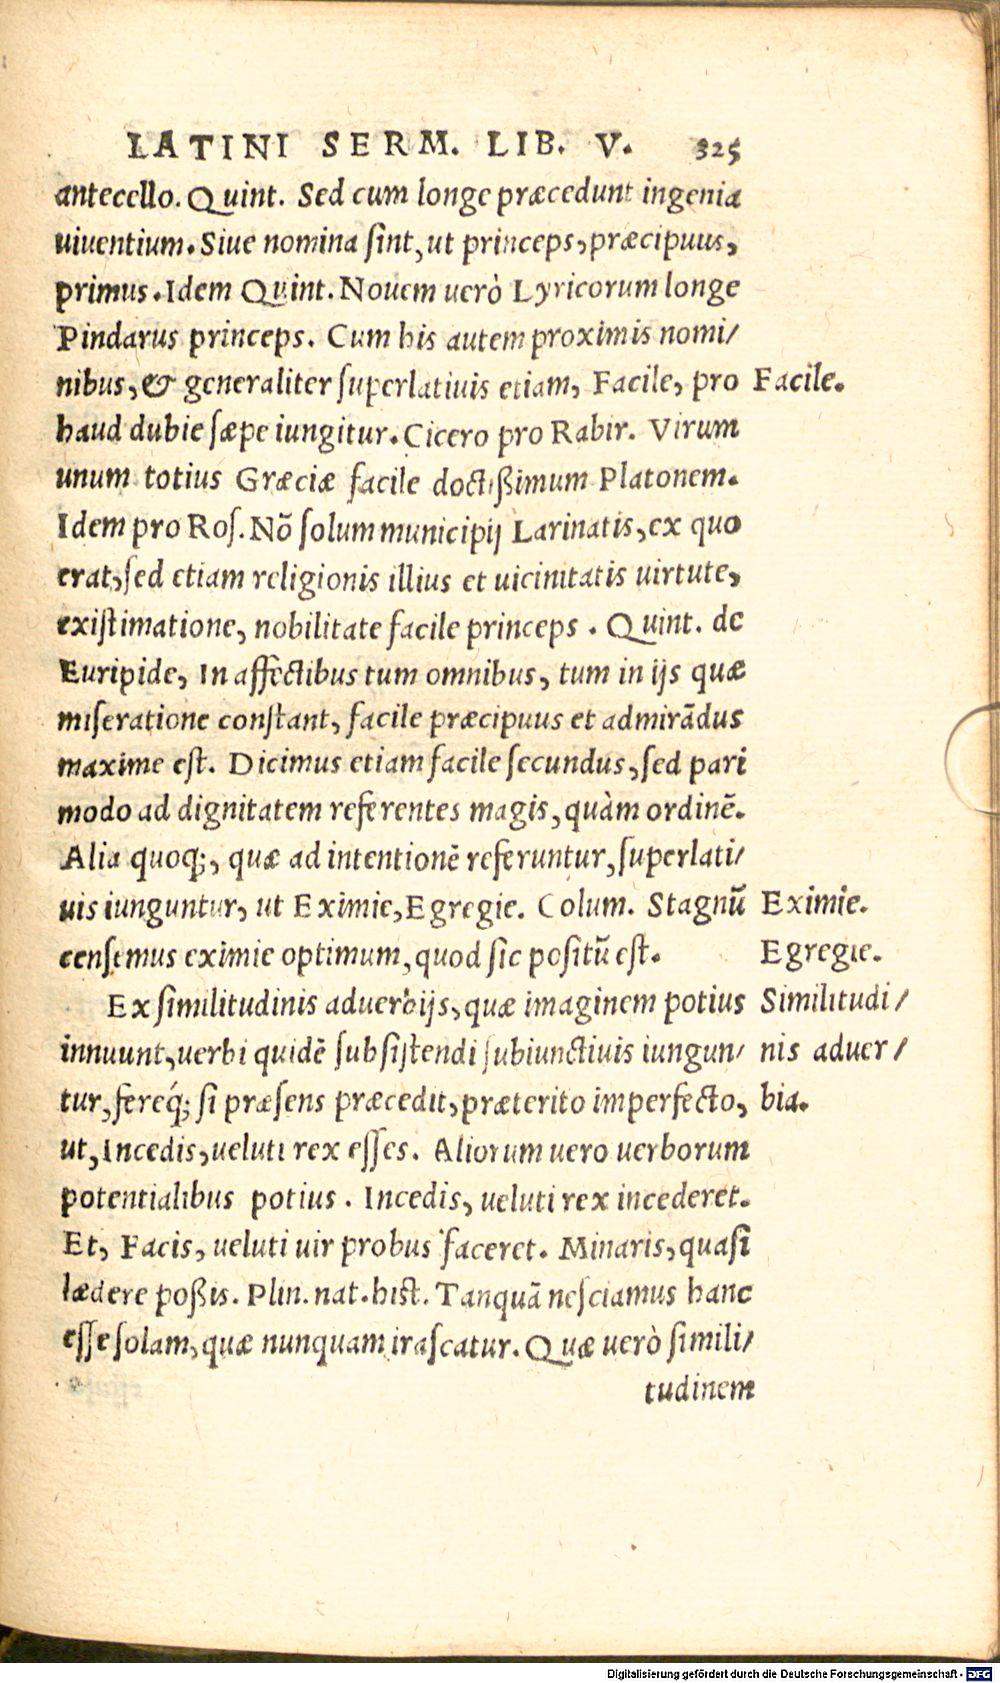 LATINI SERM. LIB. V. 325
antecello. Quint. Sed cum longe præcedunt ingenia
uiuentium. Siue nomina ſint, ut princeps, præcipuus,
primus. Idem Quint. Nouem uerò Lyricorum longe
Pindarus princeps. Cum his autem proximis nomi/
nibus, & generaliter ſuperlatiuis etiam, Facile, pro Facile.
haud dubie ſæpe iungitur. Cicero pro Rabir. Virum
unum totius Græciæ facile doctißimum Platonem.
Idem pro Roſ. Nõ ſolum municipij Larinatis, ex quo
erat, ſed etiam religionis illius et uicinitatis uirtute,
exiſtimatione, nobilitate facile princeps. Quint. de
Euripide, In affectibus tum omnibus, tum in ijs quæ
miſeratione conſtant, facile præcipuus et admirãdus
maxime eſt. Dicimus etiam facile ſecundus, ſed pari
modo ad dignitatem referentes magis, quàm ordinẽ.
Alia quoq;, quæ ad intentionẽ referuntur, ſuperlati/
uis iunguntur, ut Eximie, Egregie. Colum. Stagnũ Eximie.
cenſemus eximie optimum, quod ſic poſitũ eſt. Egregie.
Ex ſimilitudinis aduerbijs, quæ imaginem potius Similitudi/
innuunt, uerbi quidẽ ſubſiſtendi ſubiunctiuis iungun/ nis aduer/
tur, fereq́; ſi præſens præcedit, præterito imperfecto, bia.
ut, Incedis, ueluti rex eſſes. Aliorum uero uerborum
potentialibus potius. Incedis, ueluti rex incederet.
Et, Facis, ueluti uir probus faceret. Minaris, quaſi
lædere poßis. Plin. nat. hiſt. Tanquã neſciamus hanc
eſſe ſolam, quæ nunquam iraſcatur. Quæ uerò ſimili/
tudinem
Digitalisierung gefördert durch die Deutsche Forschungsgemeinschaft - DFG